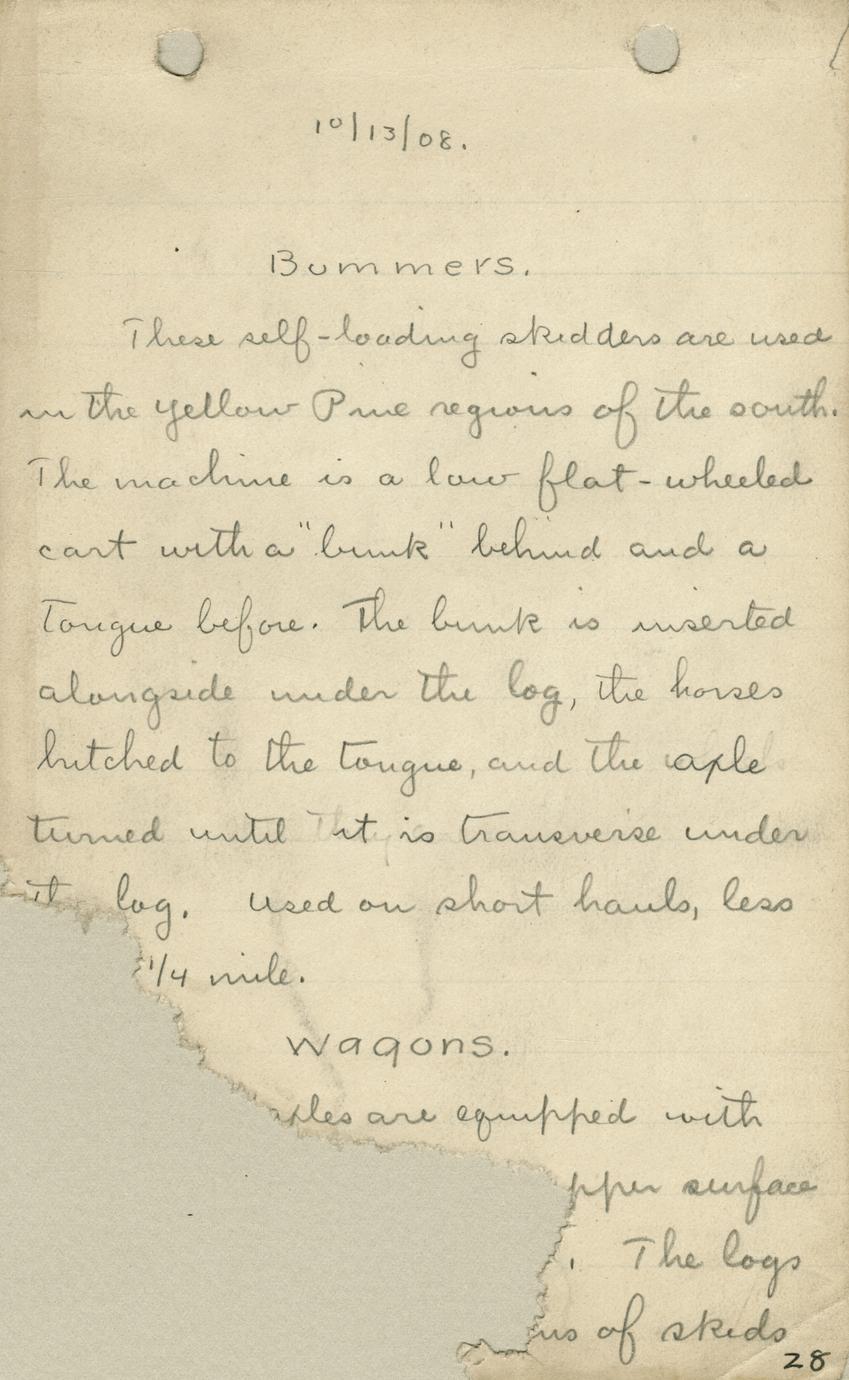 10/13/08.
Bummers.
These self-loading skidders are used
in the yellow Pine regions of the south.
The machine is a low flat-wheeled
cart with a "bunk" behind and a
tongue before. The bunk is inserted
alongside under the log, the horses
hitched to the tongue, and the axle
turned until it is transverse under
the log. Used on short hauls, less
1/4 mile.
Wagons.
axles are equipped with
pper surface
. The logs
ns of skids
28